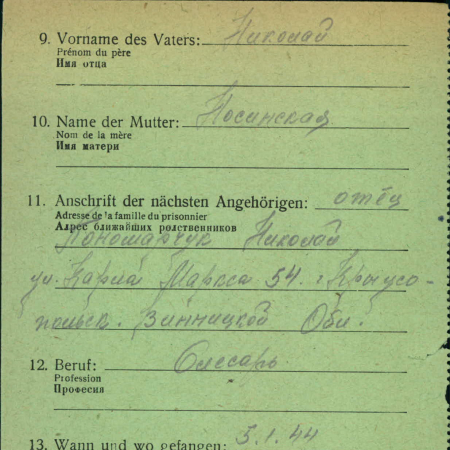 9. Vorname des Vaters: Николай
Prénom du père
Имя отца
10. Name der Mutter: Носинская
Nom de la mère
Имя матери
11. Anschrift der nächsten Angehörigen: отец
Adresse de la famille du prisonnier
Адрес ближайших родственников
Пономарчук Николай
ул. Карла Маркса 54. г. Крыжо-
польск. Винницкой Обл.
12. Beruf: Слесарь
Profession
Професия
13. Wann und wo gefangen: 5.1.44